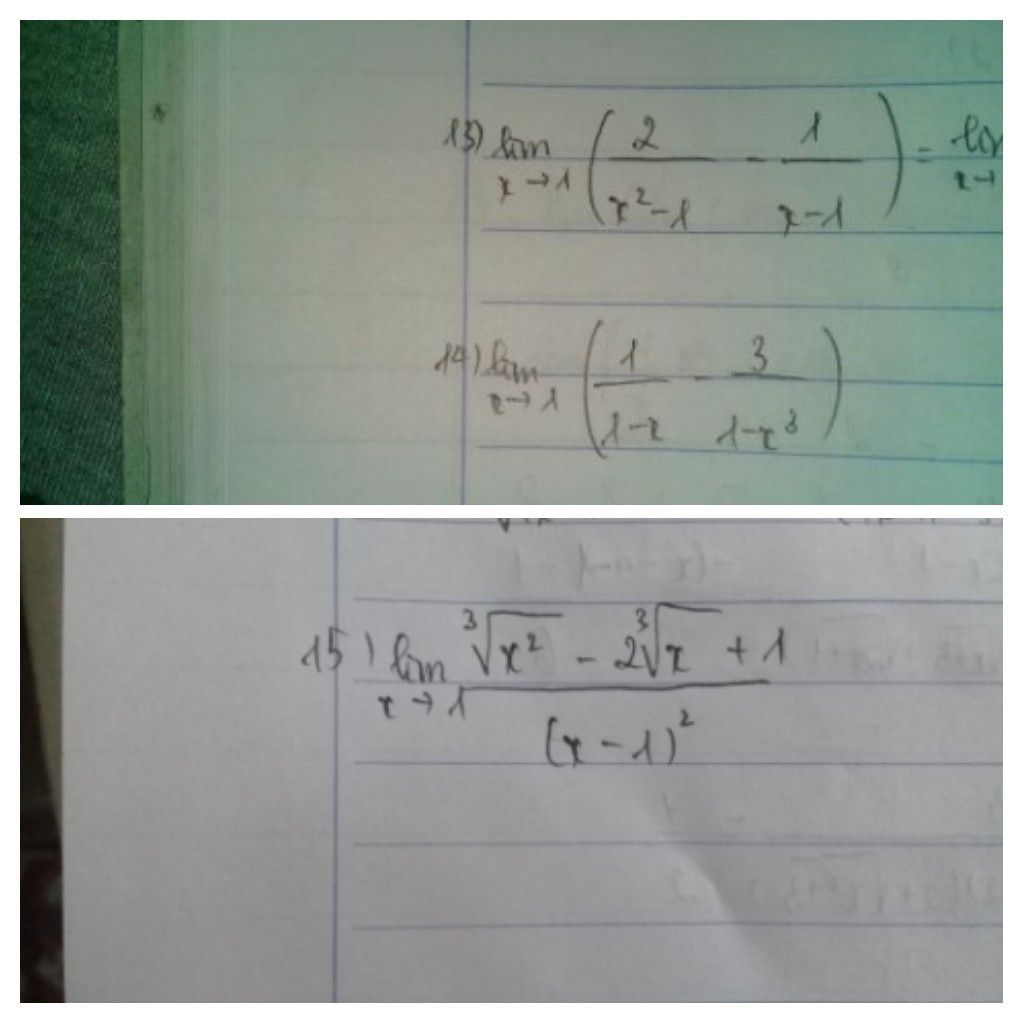 13) lim x→1 (2/(x²-1) - 1/(x-1)) = lim x→
14) lim x→1 (1/(1-x) - 3/(1-x³))
15) lim x→1 (∛x² - 2∛x + 1)/(x-1)²